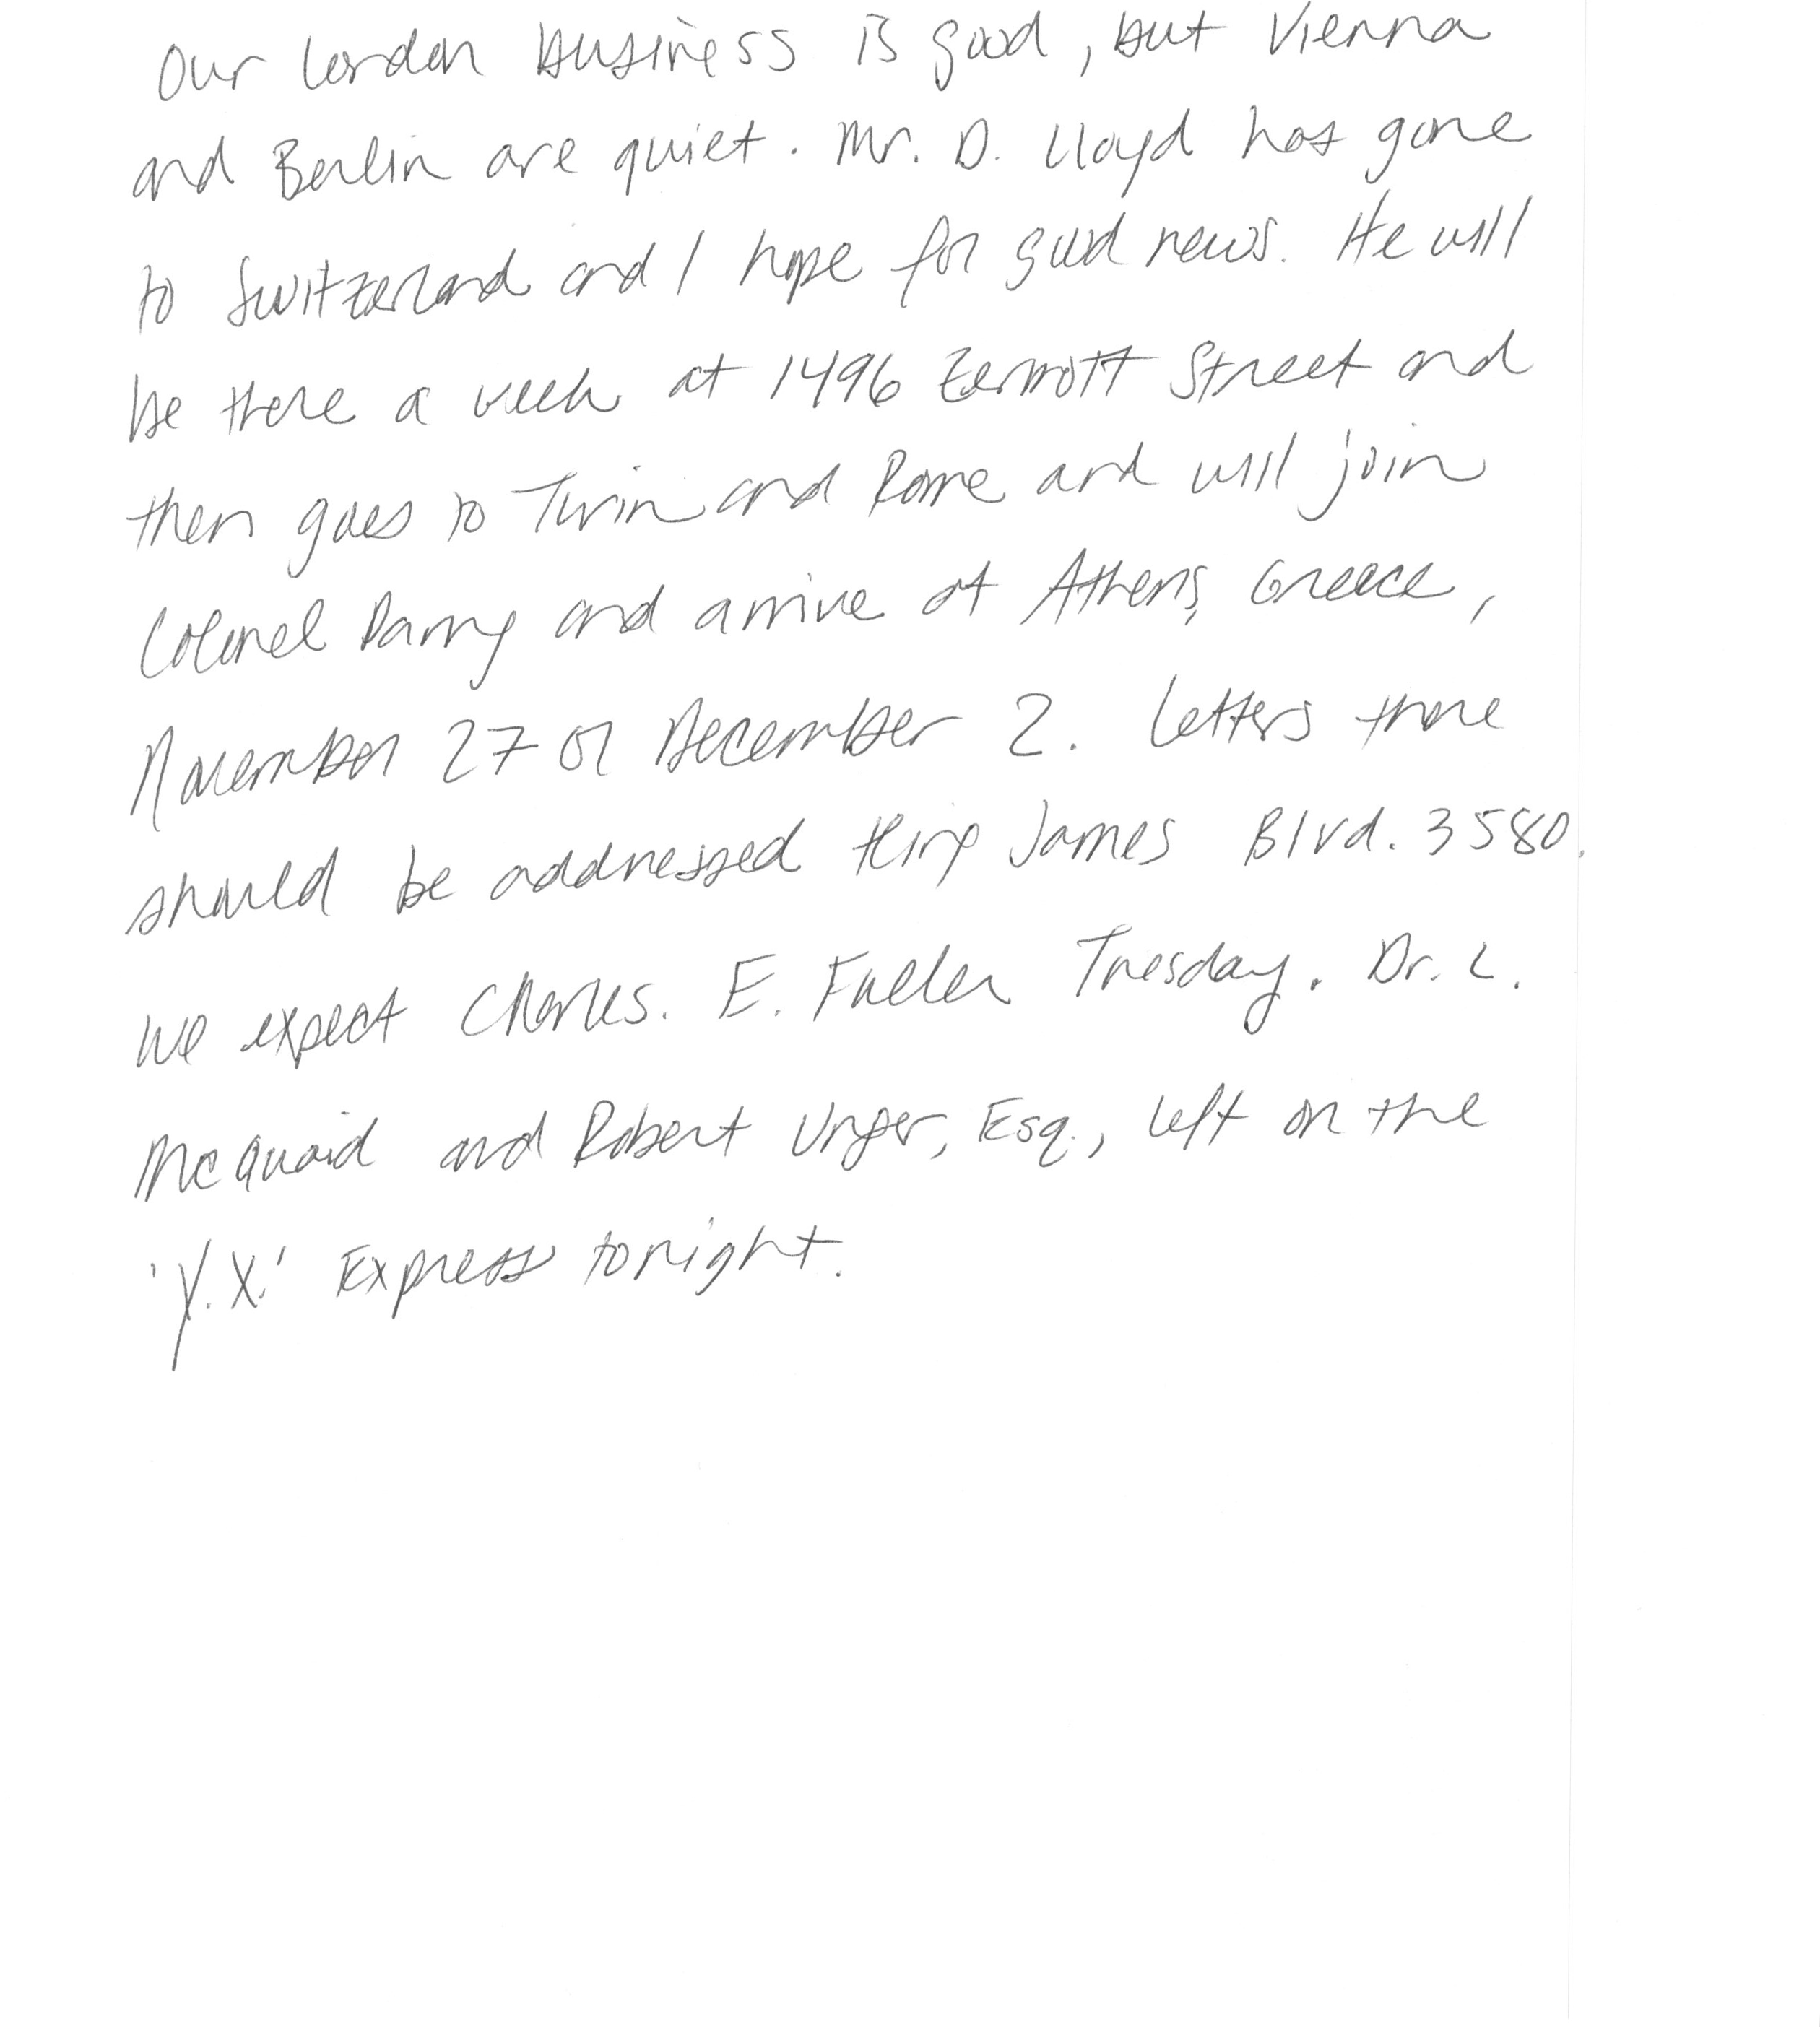 Our London business is good, but Vienna
and Berlin are quiet. Mr. D. Lloyd has gone
to Switzerland and I hope for good news. He will
be there a week at 1496 Zermott Street and
then goes to Turin and Rome and will join
Colonel Parry and arrive at Athens, Greece,
November 27 or December 2. Letters there
should be addressed King James Blvd. 3580.
We expect Charles. E. Fuller Tuesday. Dr. L.
McQuaid and Robert Unger, Esq., left on the
'Y.X.' Express tonight.